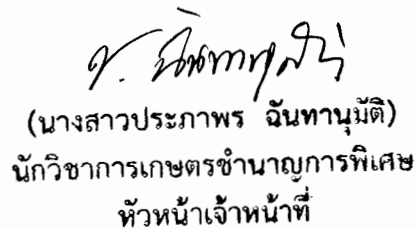 (นางสาวประภาพร ฉันทานุมัติ)
นักวิชาการเกษตรชำนาญการพิเศษ
หัวหน้าเจ้าหน้าที่